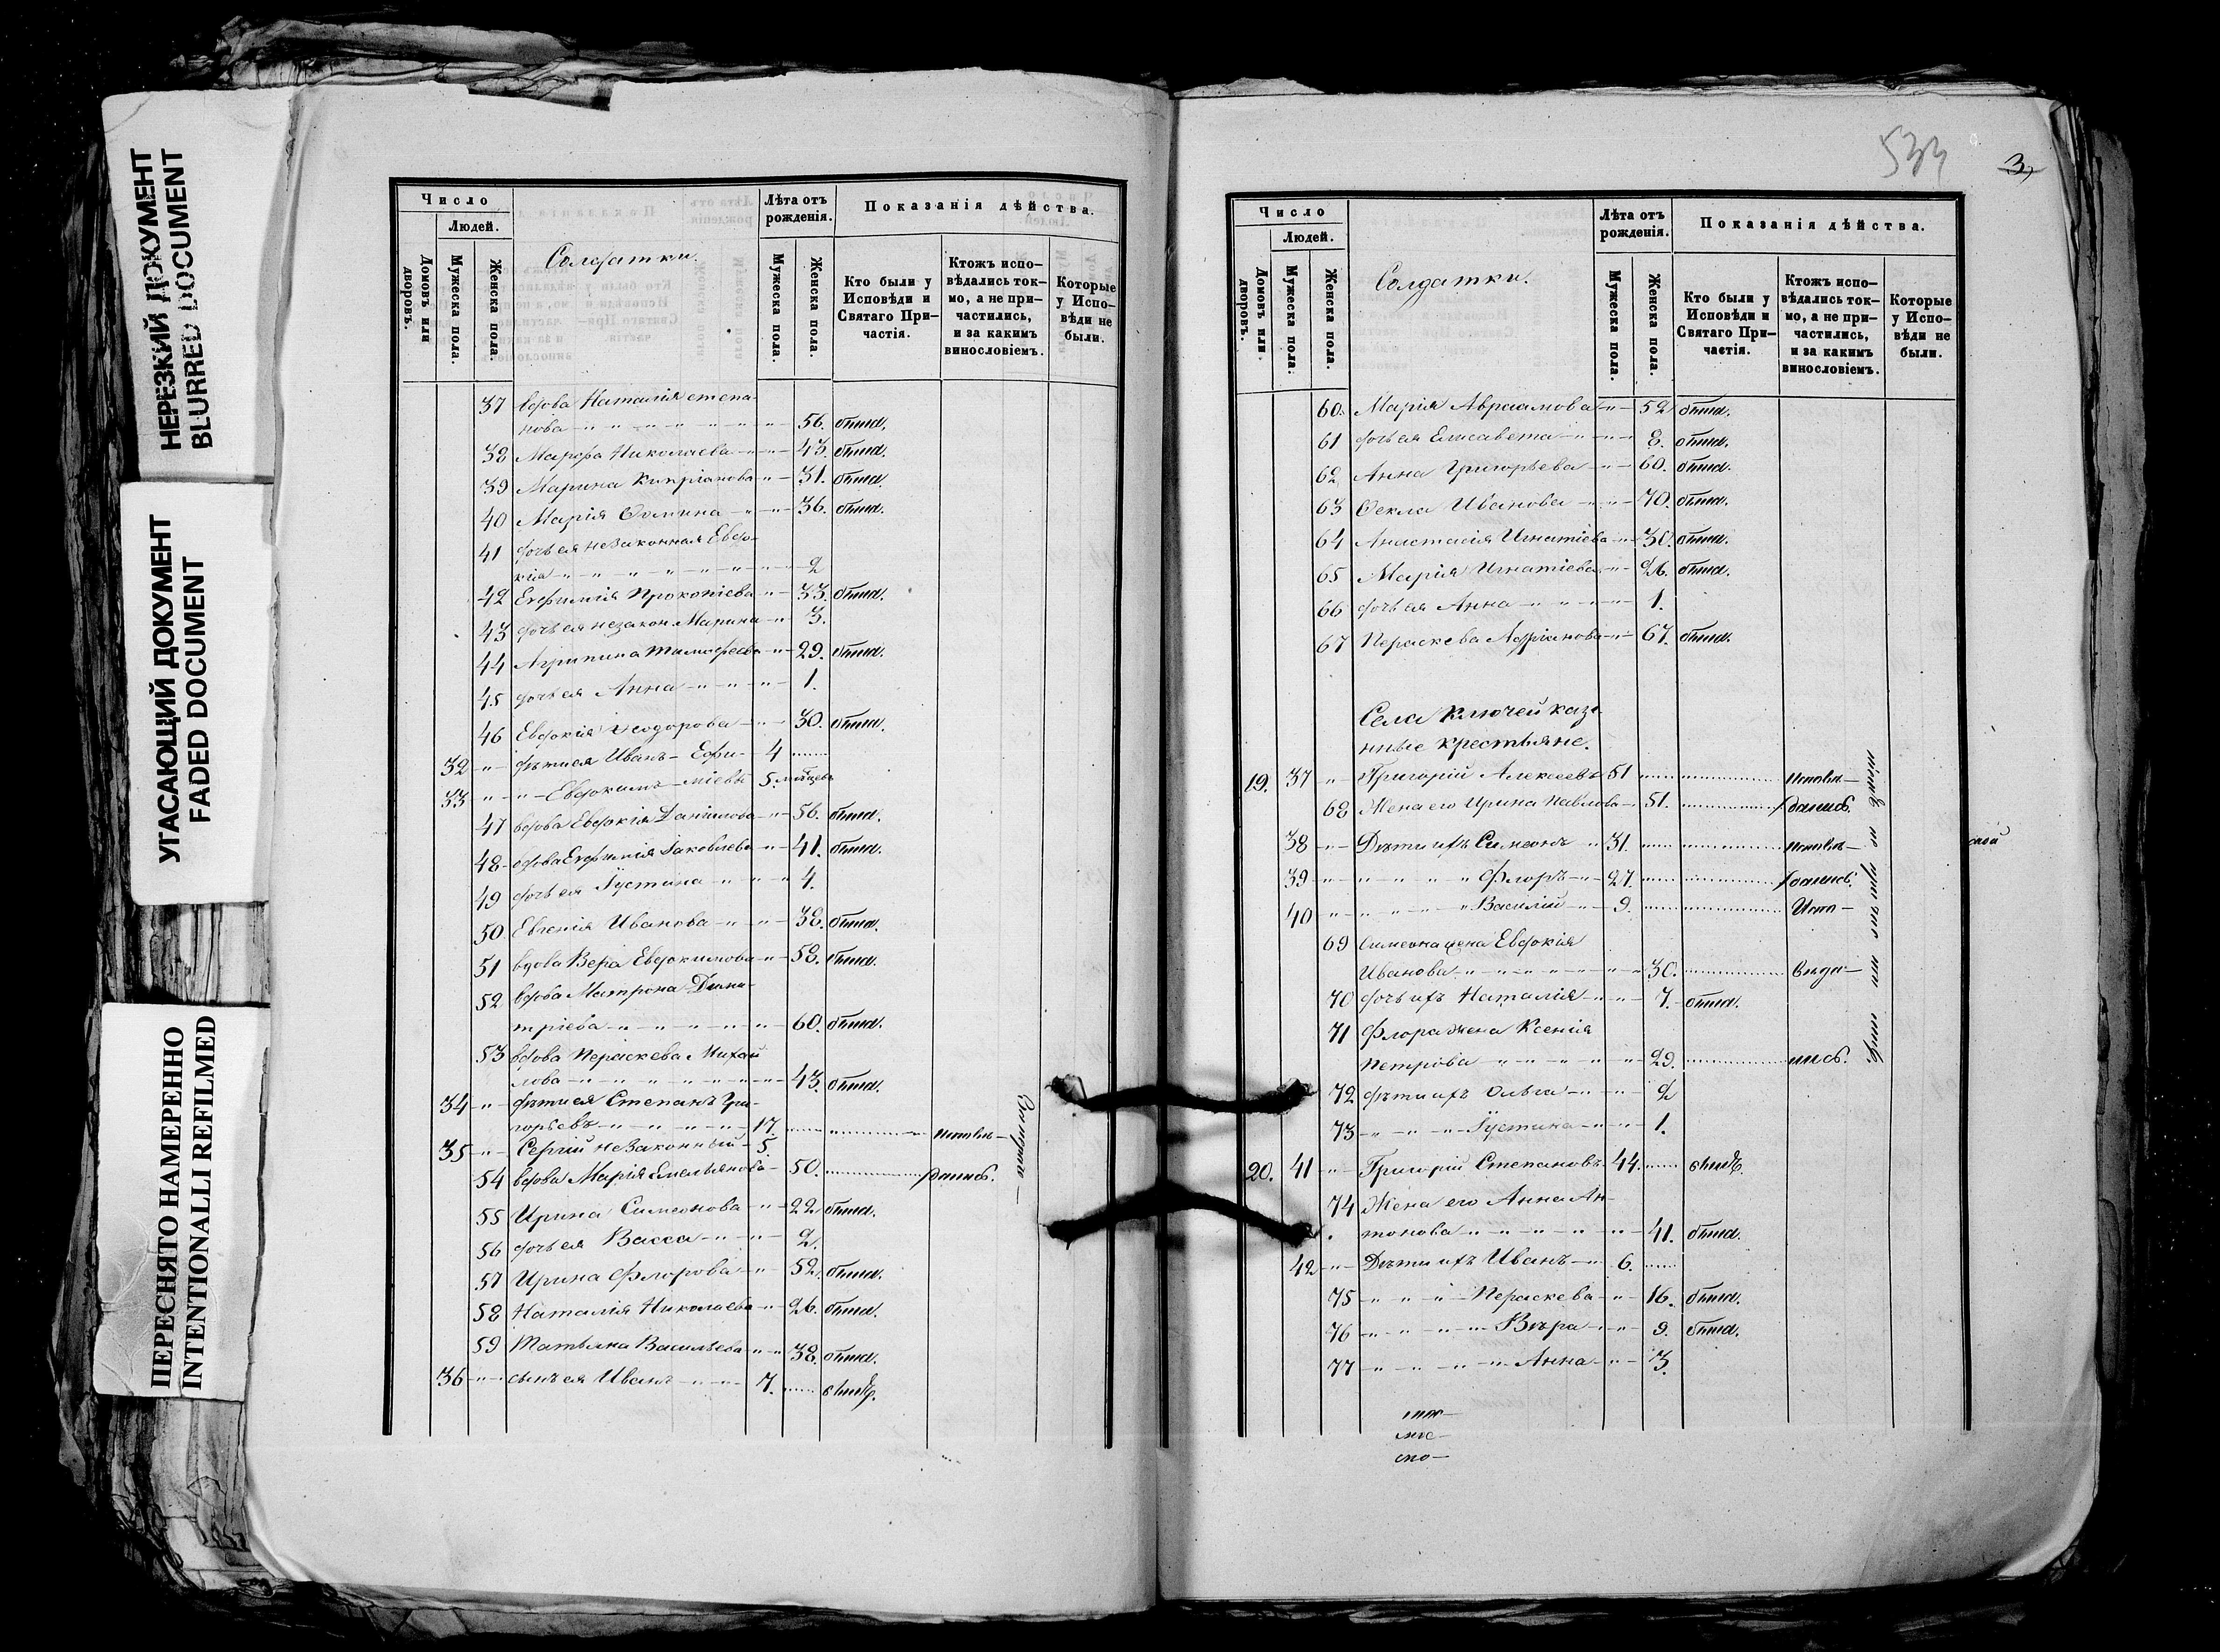 НЕРЕЗКИЙ ДОКУМЕНТ
BLURRED DOCUMENT
УГАСАЮЩИЙ ДОКУМЕНТ
FADED DOCUMENT
ПЕРЕСНЯТО НАМЕРЕННО
INTENTIONALLI REFILMED
Число
Людей.
Домовъ или дворовъ.
Мужеска пола.
Женска пола.
Солдатки.
Лѣта отъ рожденія.
Мужеска пола.
Женска пола.
Показанія дѣйства.
Кто были у Исповѣди и Святаго Причастія.
Ктожъ исповѣдались токмо, а не причастились, и за какимъ винословіемъ.
Которые у Исповѣди не были.
37 вдова Наталія Степа-
нова 56. была.
38 Марфа Николаева 43. была.
39 Марина Кипріанова 31. была.
40 Марія Фомина 36. была.
41 дочь ея незаконная Евдо-
кія 2
42 Евфимія Прокопіева 33. была.
43 дочь ея незакон. Марина 3.
44 Агрипина Тимофеева 29. была.
45 дочь ея Анна 1.
46 Евдокія Ѳеодорова 30. была.
32 дѣти ея Иванъ Ефи- 4
33 Евдокимъ міевы 5. мѣсяцевъ
47 вдова Евдокія Даніилова 56. была.
48 вдова Евфимія Іаковлева 41. была.
49 дочь ея Іустина 4.
50. Евгенія Иванова 38. была.
51 вдова Вера Евдокимова 58. была.
52 вдова Матрона Дими-
тріева 60. была.
53 вдова Пераскева Михай
лова 43. была.
34 дѣти ея Степанъ Гри-
горьевъ 17. исповѣ-
35 Сергій незаконный 5.
54 вдова Марія Емельянова 50. дались.
55 Ирина Симеонова 22. была.
56 дочь ея Васса 2.
57 Ирина Флорова 52. была.
58 Наталія Николаева 26. была.
59 Татьяна Васильева 38. была.
36 сынъ ея Иванъ 7. былъ.
533
3
Число
Людей.
Домовъ или дворовъ.
Мужеска пола.
Женска пола.
Солдатки.
Лѣта отъ рожденія.
Мужеска пола.
Женска пола.
Показанія дѣйства.
Кто были у Исповѣди и Святаго Причастія.
Ктожъ исповѣдались токмо, а не причастились, и за какимъ винословіемъ.
Которые у Исповѣди не были.
60. Марія Авраамова 52 была.
61 дочь ея Елисавета 8. была.
62 Анна Григорьева 60. была.
63 Ѳекла Иванова 70. была.
64 Анастасія Игнатіева 30. была.
65 Марія Игнатіева 26. была.
66 дочь ея Анна 1.
67 Пераскева Адріанова 67. была.
Села Ключей казе-
нные крестьяне.
19. 37 Григорій Алексеевъ 51 исповѣ-
68 Жена его Ирина Павлова 51. дались.
38 Дѣти ихъ Симеонъ 31. исповѣ-
39 Флоръ 27. дались.
40 Василій 9. Испо-
69 Симеона жена Евдокія
Иванова 30. вѣда-
70 дочь ихъ Наталія 7. была.
71 Флора жена Ксенія
Петрова 29. лись.
72 дѣти ихъ Ольга 2
73 Іустина 1.
20. 41 Григорій Степановъ 44. былъ.
74 Жена его Анна Ан-
тонова 41. была.
42 Дѣти ихъ Иванъ 6.
75 Пераскева 16. была.
76 Вѣра 9. была.
77 Анна 3.